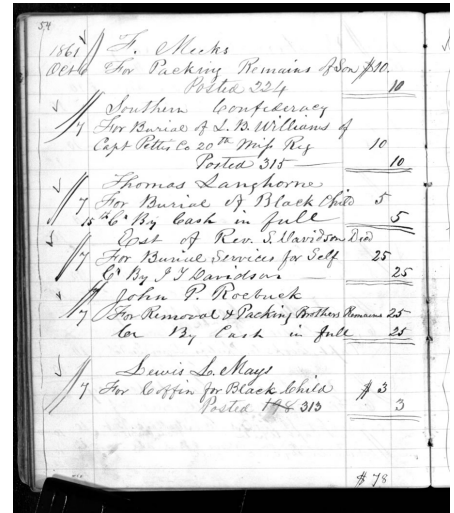 54
1861 F. Meeks
Oct 6 For Packing Remains of Son $10.
Posted 224 10
Southern Confederacy
7 For Burial of L. B. Williams of
Capt Potts Co 20th Miss Reg 10
Posted 315 10
Thomas Langhorne
7 For Burial of Black Child 5
15th Cr By Cash in full 5
Est of Rev. S. Davidson Decd
7 For Burial Services for Self 25
Cr By J T Davidson 25
John P. Roebuck
7 For Removal & Packing Brothers Remains 25
Cr By Cash in full 25
Lewis L. Mays
7 For Coffin for Black Child $3
Posted 198 313 3
$78